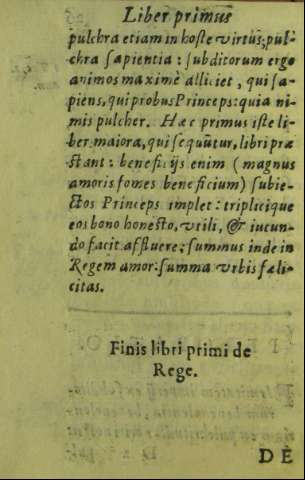 Liber primus
pulchra etiam in hoste virtus, pul-
chra sapientia: subditorum ergo
animos maximè alliciet, qui sa-
piens, qui probus Princeps: quia ni-
mis pulcher. Hæc primus iste li-
ber maiora, qui sequũtur, libri præ
stant: beneficijs enim (magnus
amoris fomes beneficium) subie-
ctos Princeps implet: triplicique
eos bono honesto, vtili, & iucun-
do facit affluere; summus inde in
Regem amor: summa vrbis fæli-
citas.
Finis libri primi de
Rege.
DE